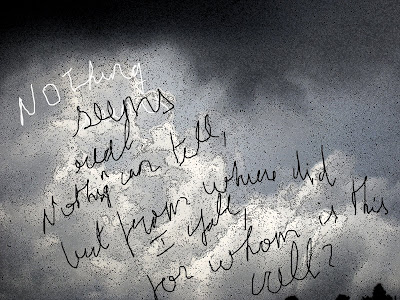 NOThing
seems
real
Nothing can tell,
but from where did
I fall,
for whom is this